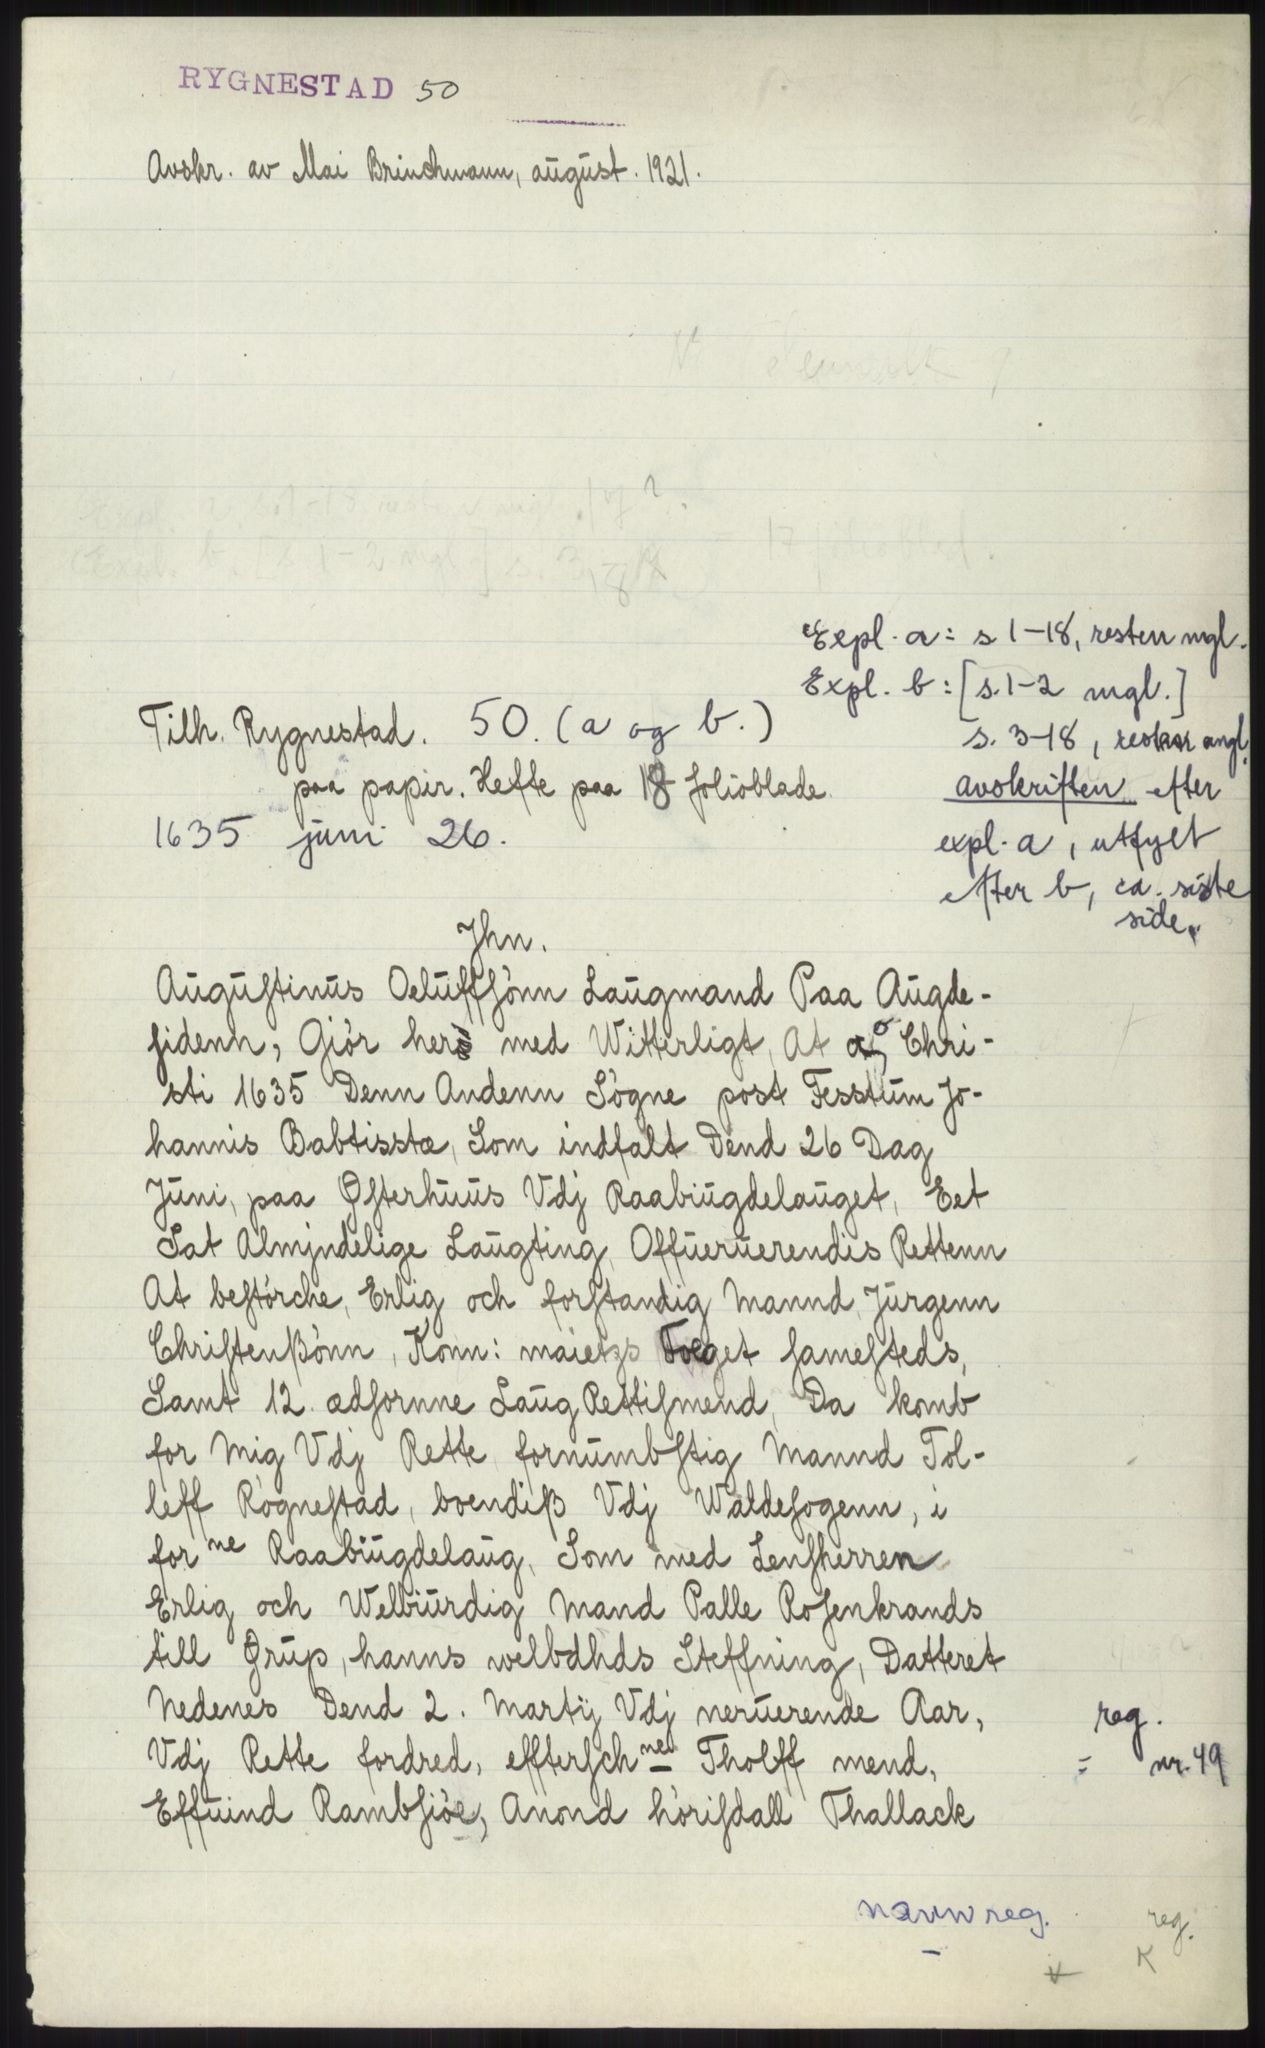 RYGNESTAD 50
Avskr. av Mai Brinchmann, august. 1921.
Expl. a: s 1-18, resten mgl.
Expl. b: [s. 1-2 mgl.]
s. 3-18, resten mgl.
avskriften efter
expl. a, utfylt
efter b, ca. siste
side.
Tilh. Rygnestad. 50. (a og b.)
paa papir. Hefte paa 18 folioblade
1635 juni 26.
Jhn.
Augustinus Oeluffsónn Laugmand Paa Augde-
sidenn, Giór her med Witterligt, At ao Chri-
sti 1635 Denn Andenn Sógne post Fesstum Jo-
hannis Babtisstæ, Som indfalt Dend 26 Dag
Juni, paa Østerhuus Vdj Raabiugdelauget, Eet
Sat Almjndelige Laugting, Offueruerendis Rettenn
At bestórche, Erlig och forstandig Mannd, Jurgenn
Christenßónn, Konn: maietzs Foeget samesteds,
Samt 12. ædsornne Laug Rettismend, Da komb
for Mig Vdj Rette fornumbstig Mannd Tol-
leff Rógnestad, boendiß Vdj Waldesogenn, i
forne Raabiugdelaug, Som med Lensherren
Erlig och Welbiurdig Mand Palle Rosenkrands
till Ørup, hanns welbdhds Steffning, Datteret
Nedenes Dend 2. Martij Vdj neruerende Aar,
Vdj Rette fordred, effterschne Tholff mend,
reg.
= nr. 49
Effuind Rambsióe, Anond hórisdall Thallack
navnreg.
reg.
K